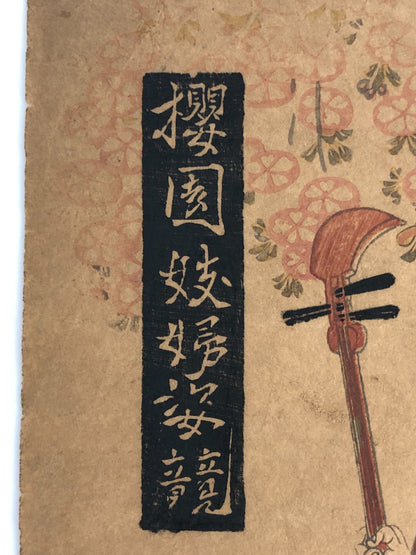 櫻園妓婦姿競